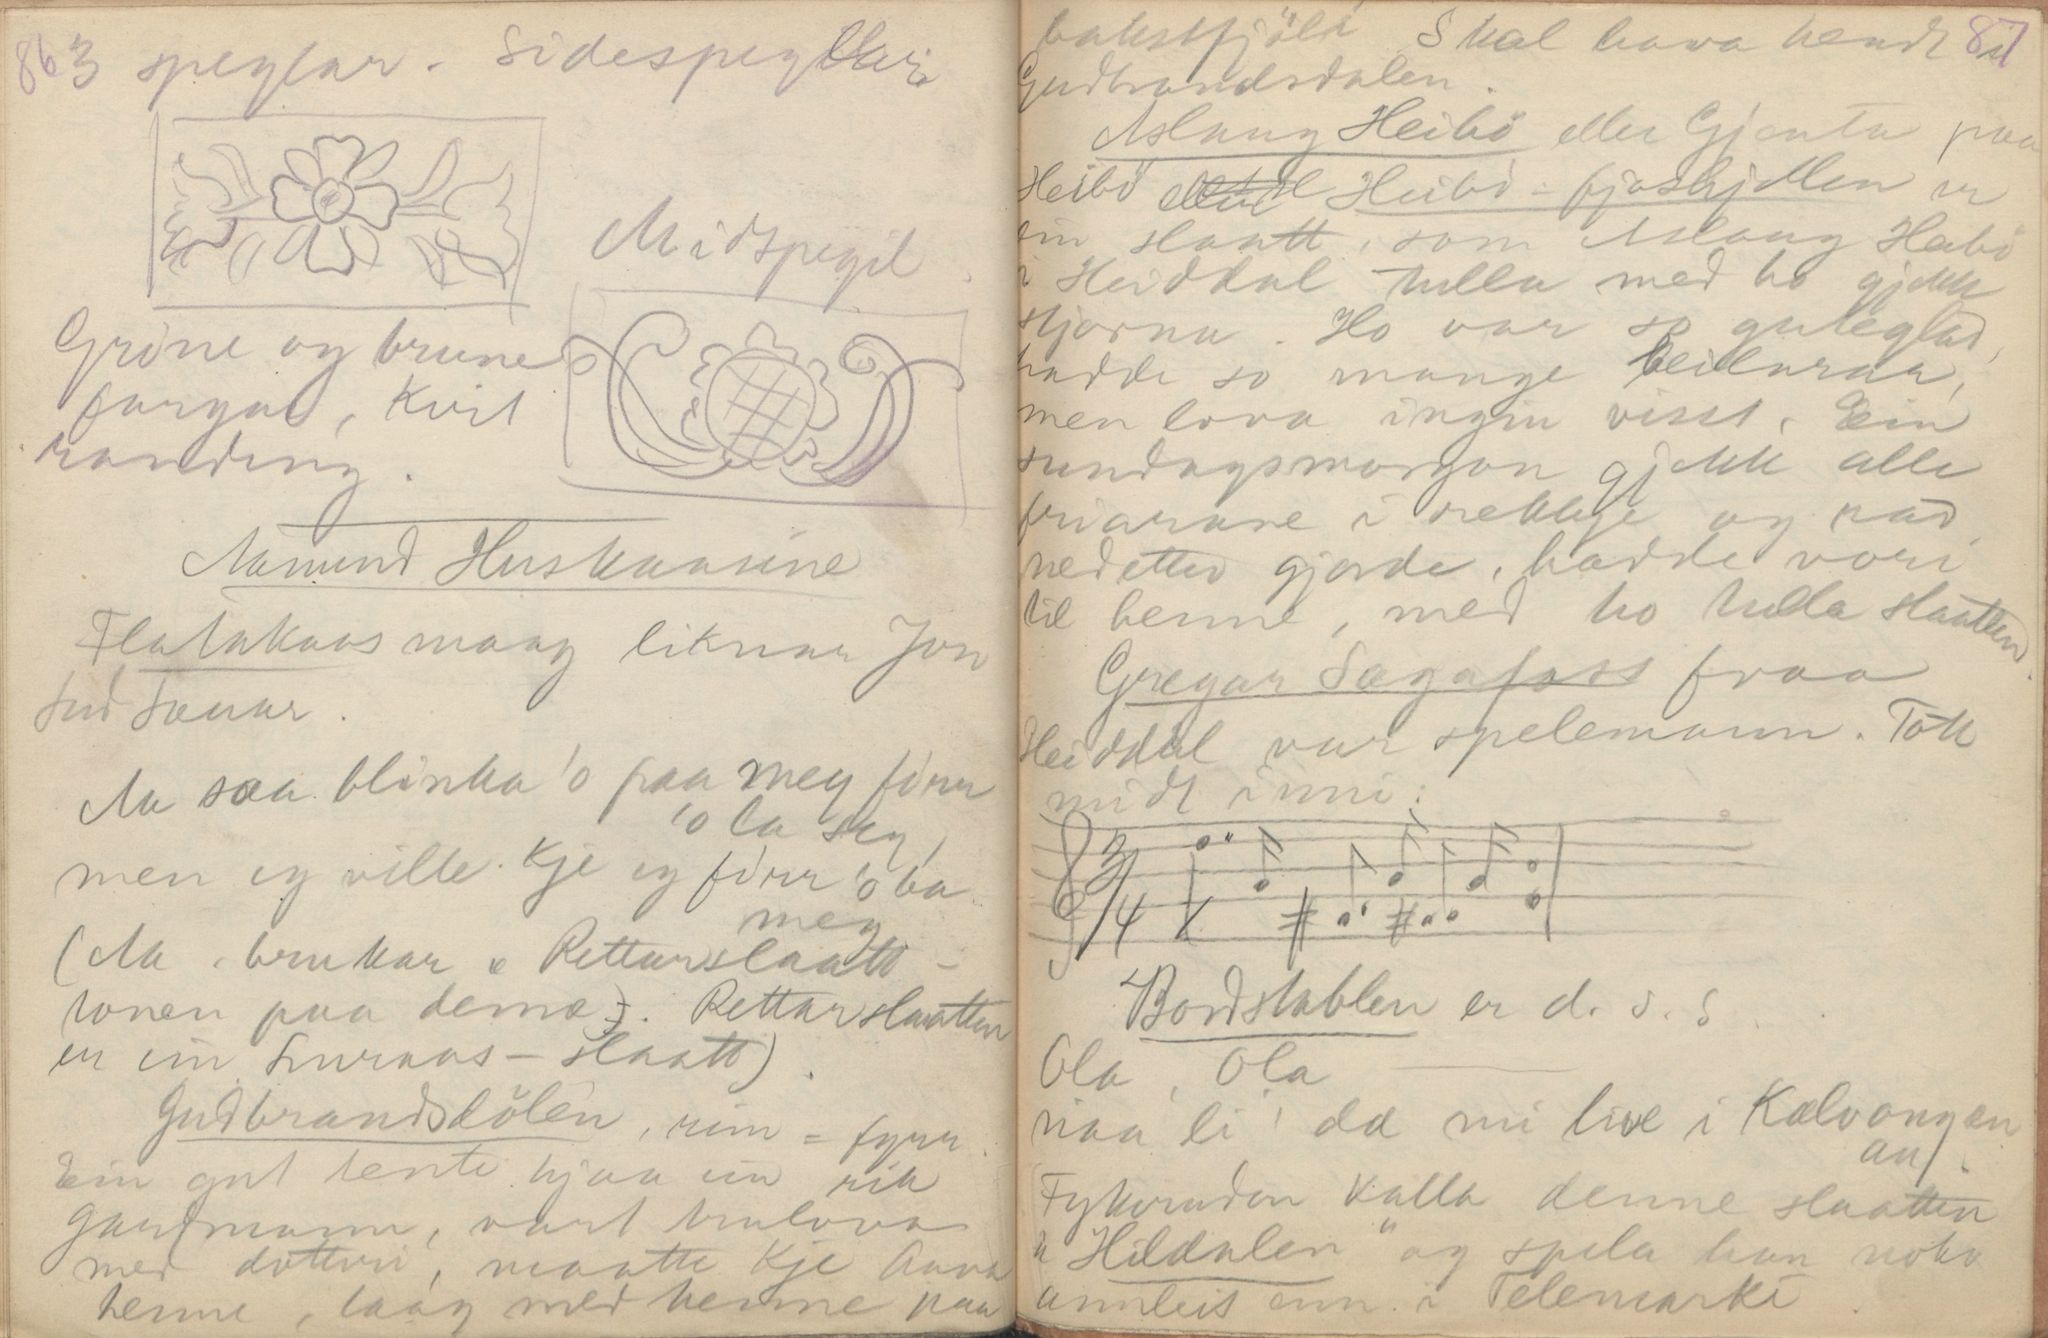 86
3 speglar. Sidespeglar:
Midspegil
Gröne og brune
fargar, kvit
randing.
Aamund Huskaasine
Flatakaas maag liknar Jon
Sud Sauar.
Aa saa blinka 'o paa meg fÿrr
'o la seg,
men eg ville kje eg fÿrr 'o ba
meg
(Aa brukar Rettarslaatt-
tonen paa denne). Rettarslaatten
er ein Luraas-slaatt).
Gudbrandsdölen, rim = fyrr.
Ein gut tente hjaa ein rik
gardmann, vart trulova
med dotteri, maatte kje hava
henne, laag med henne paa
87
bakstfjöli Skal hava hendt i
Gudbrandsdalen.
Aslaug Heibö eller Gjenta paa
Heibö Heibö-fjoshjellen er
ein slaatt, som Aslaug Heibö
i Heiddal tulla med ho gjekk
stjorna. Ho var so guteglad,
hadde so mange beilarar,
men lova ingin visst. Ein
sundagsmorgon gjekk alle
friarane i rekkje og rad
nedetter gjorde, hadde vori
til henne, med ho tulla slaatten.
Gregar Sagafoss fraa
Heiddal var spelemann. Tok
midt inni:
3/4
Bordstabben er d. s. s.
Ola, Ola
naa li' dæ mi live i Kalvangen
an
Fykerudon kalla denne slaatten
"Hildalen" og spela han noko
annleis enn i Telemarki.